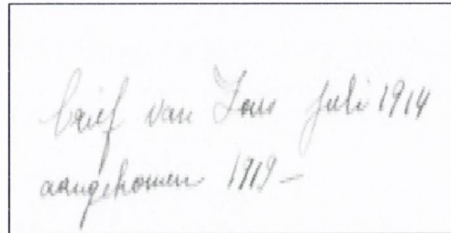 brief van Lous juli 1914
aangekomen 1919 –